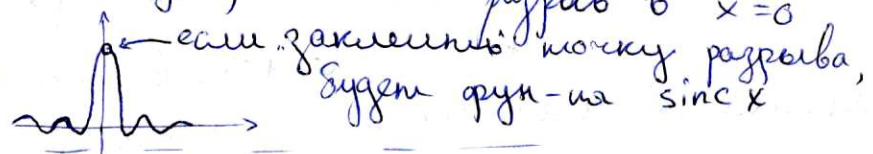 разрыв в x=0
если "заклеить" точку разрыва,
будет фун-ия sinc x